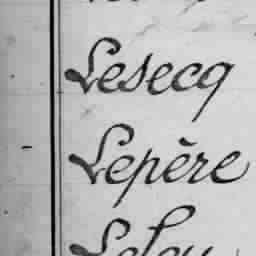 Lesecq
Lepère